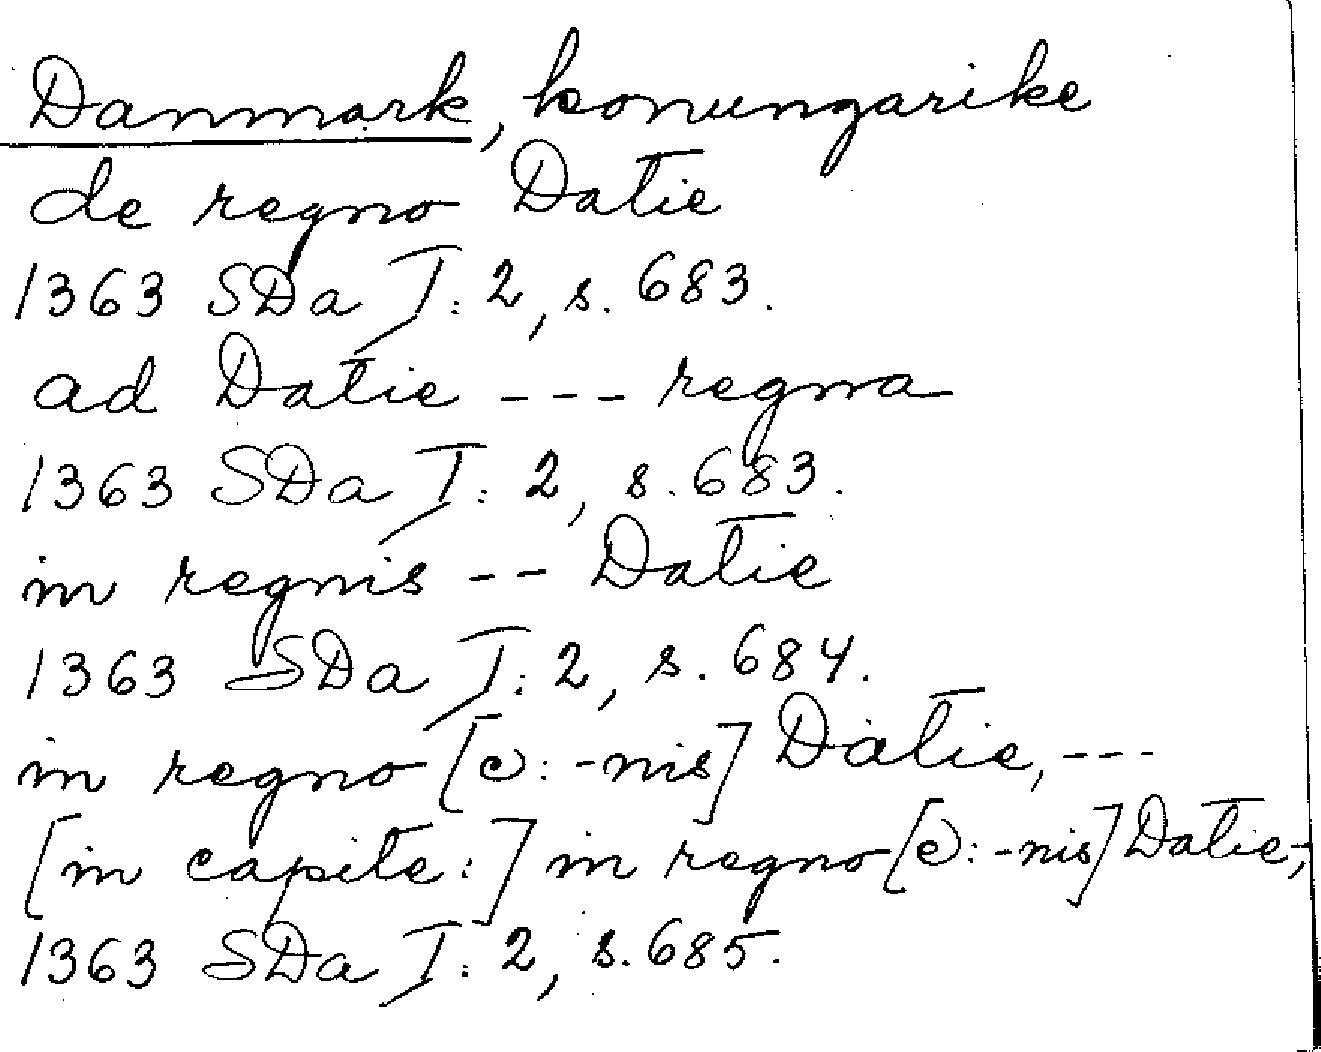 Danmark, konungarike
de regno Datie
1363 SDa I: 2, s. 683.
ad Datie --- regna
1363 SDa I: 2, s. 683.
in regnis -- Datie
1363 SDa I: 2, s. 684.
in regno [ɔ: -nis] Datie, ---
[in capite:] in regno [ɔ: -nis] Datie,
1363 SDa I: 2, s. 685.